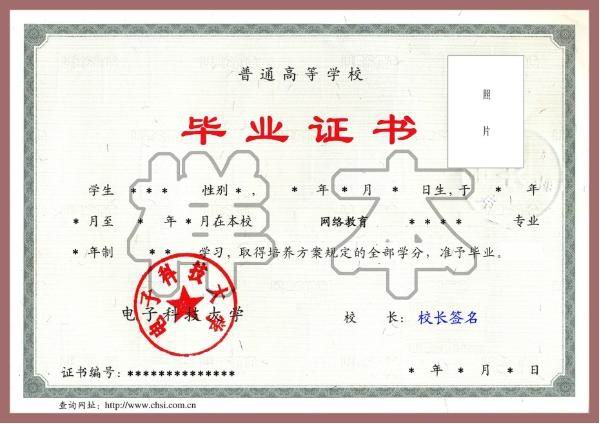 普通高等学校
毕业证书
照
片
样本
学生 *** 性别*, *年*月*日生,于 *年
*月至 *年*月在本校 网络教育 **** 专业
*年制 ** 学习,取得培养方案规定的全部学分,准予毕业。
电子科技大学
电子科技大学 校 长: 校长签名
证书编号: ************** *年*月*日
查询网址: http://www.chsi.com.cn